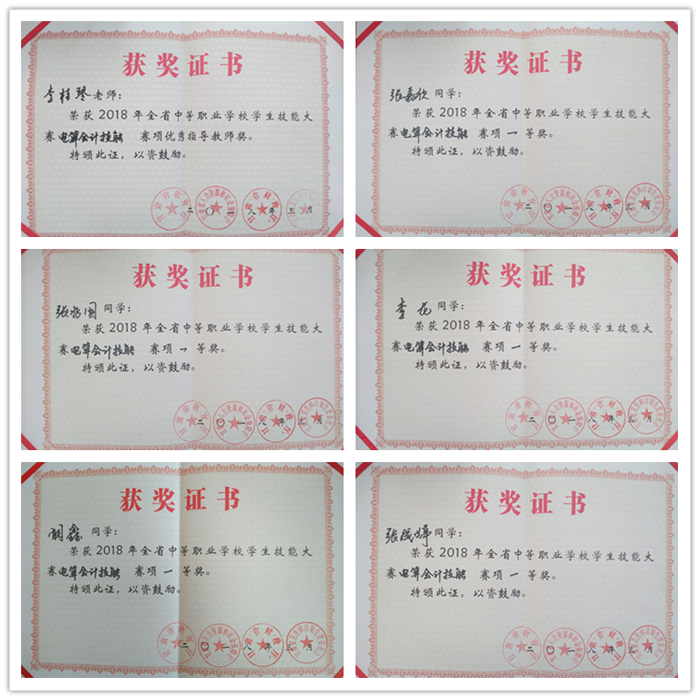 获奖证书
李桂琴老师：
荣获2018年全省中等职业学校学生技能大
赛电算会计技能 赛项优秀指导教师奖。
特颁此证，以资鼓励。
二〇一八年 月
获奖证书
张嘉欣同学：
荣获2018年全省中等职业学校学生技能大
赛电算会计技能 赛项一等奖。
特颁此证，以资鼓励。
二〇一八年 月
获奖证书
同学：
荣获2018年全省中等职业学校学生技能大
赛电算会计技能 赛项一等奖。
特颁此证，以资鼓励。
二〇一八年 月
获奖证书
李 同学：
荣获2018年全省中等职业学校学生技能大
赛电算会计技能 赛项一等奖。
特颁此证，以资鼓励。
二〇一八年 月
获奖证书
胡鑫同学：
荣获2018年全省中等职业学校学生技能大
赛电算会计技能 赛项一等奖。
特颁此证，以资鼓励。
二〇一八年 月
获奖证书
同学：
荣获2018年全省中等职业学校学生技能大
赛电算会计技能 赛项一等奖。
特颁此证，以资鼓励。
二〇一八年 月